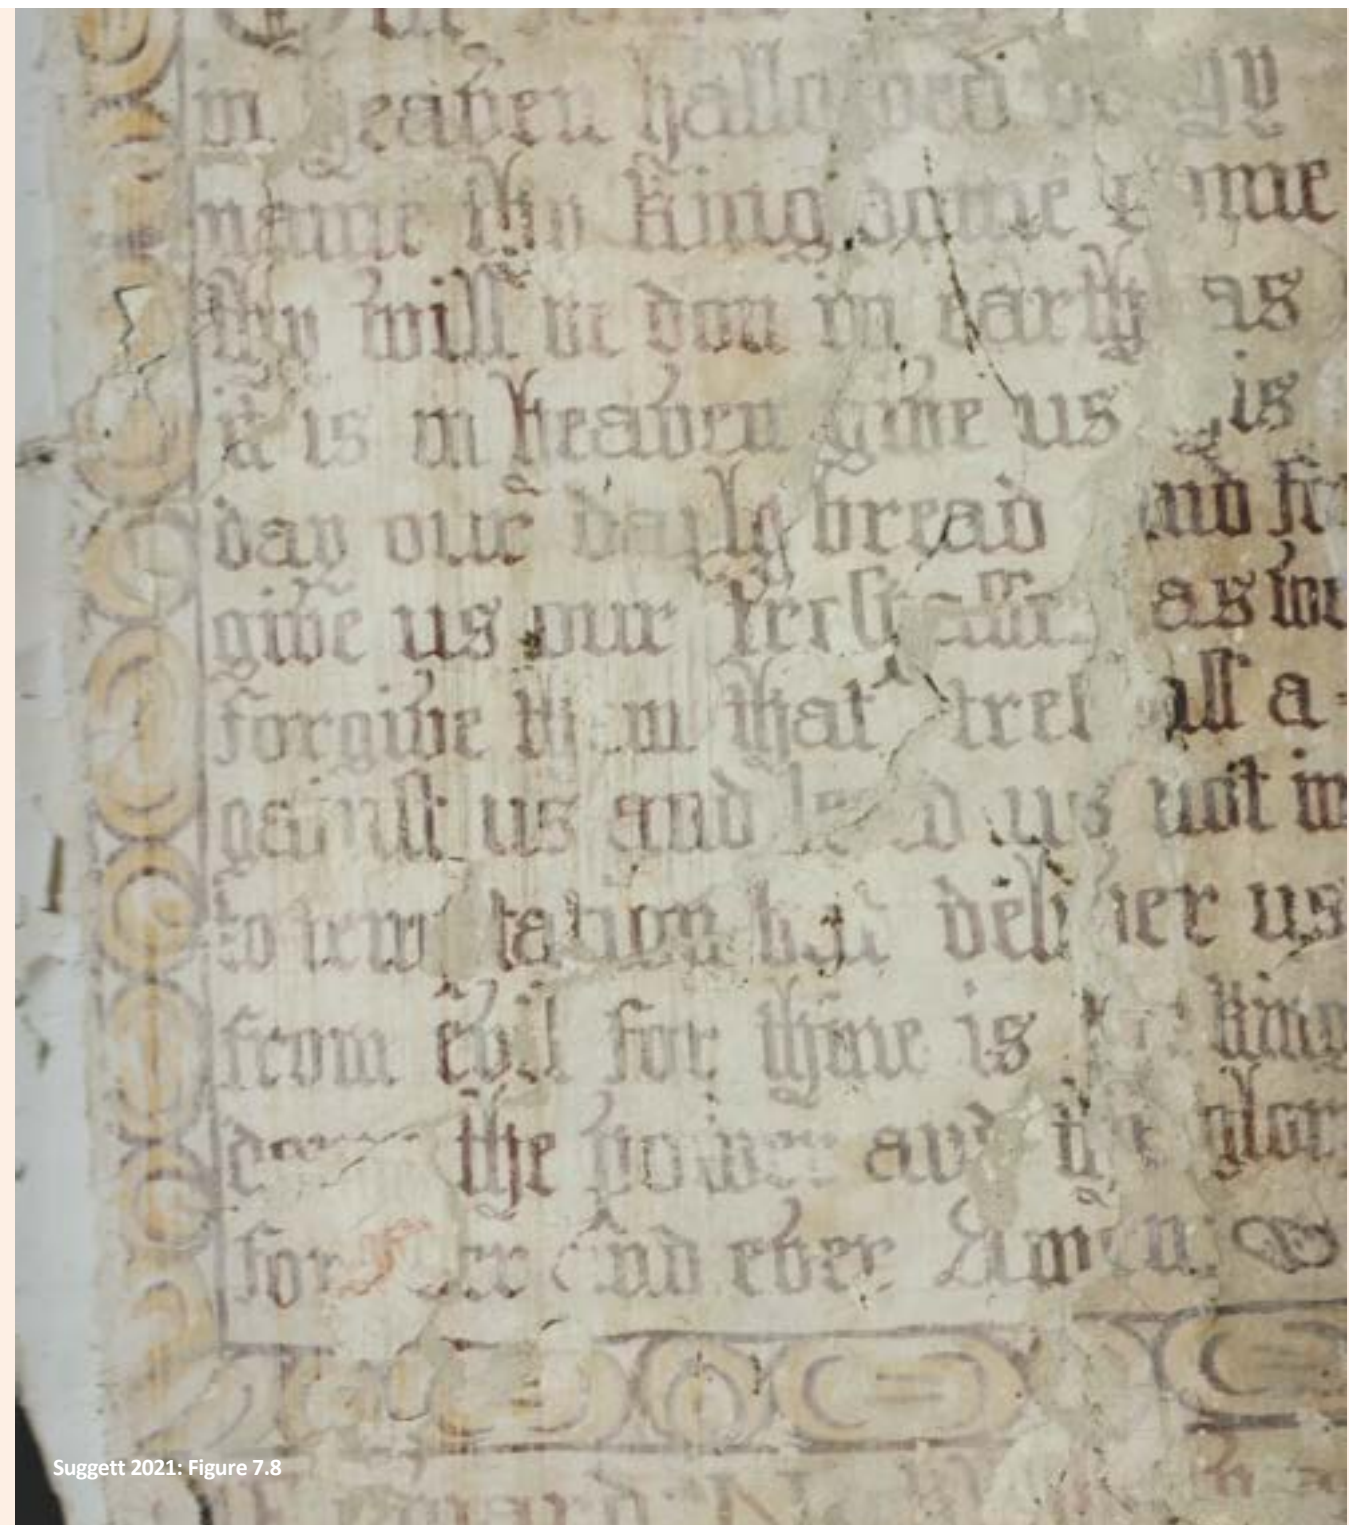 in heaven hallowed be thy
name thy kingdome come
thy will be don in earth as
it is in heaven give us this
day our daily bread and for
give us our trespasses as we
forgive them that tres pass a-
gainst us and lead us not in
to tem tation but deliver us
from evil for thine is the king
dome the power and the glor
for ever and ever Amen
Suggett 2021: Figure 7.8